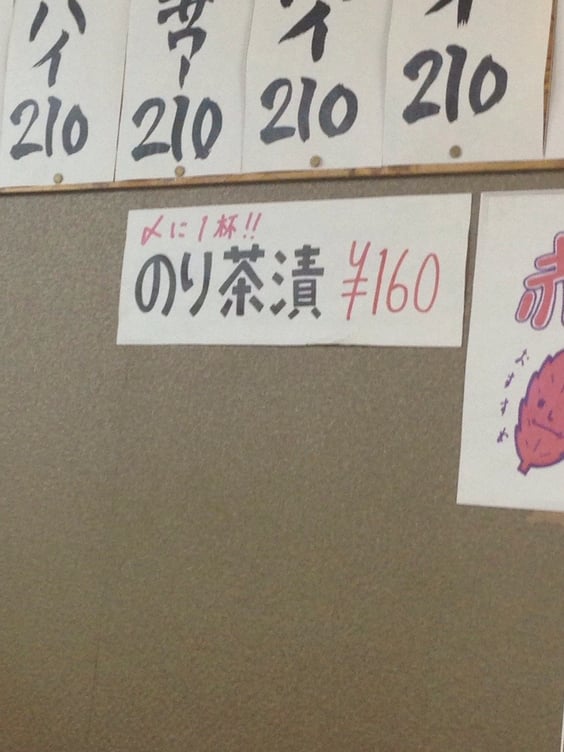 ハイ
210
サワー
210
210
210
〆に1杯!!
のり茶漬 ¥160
赤
おすすめ